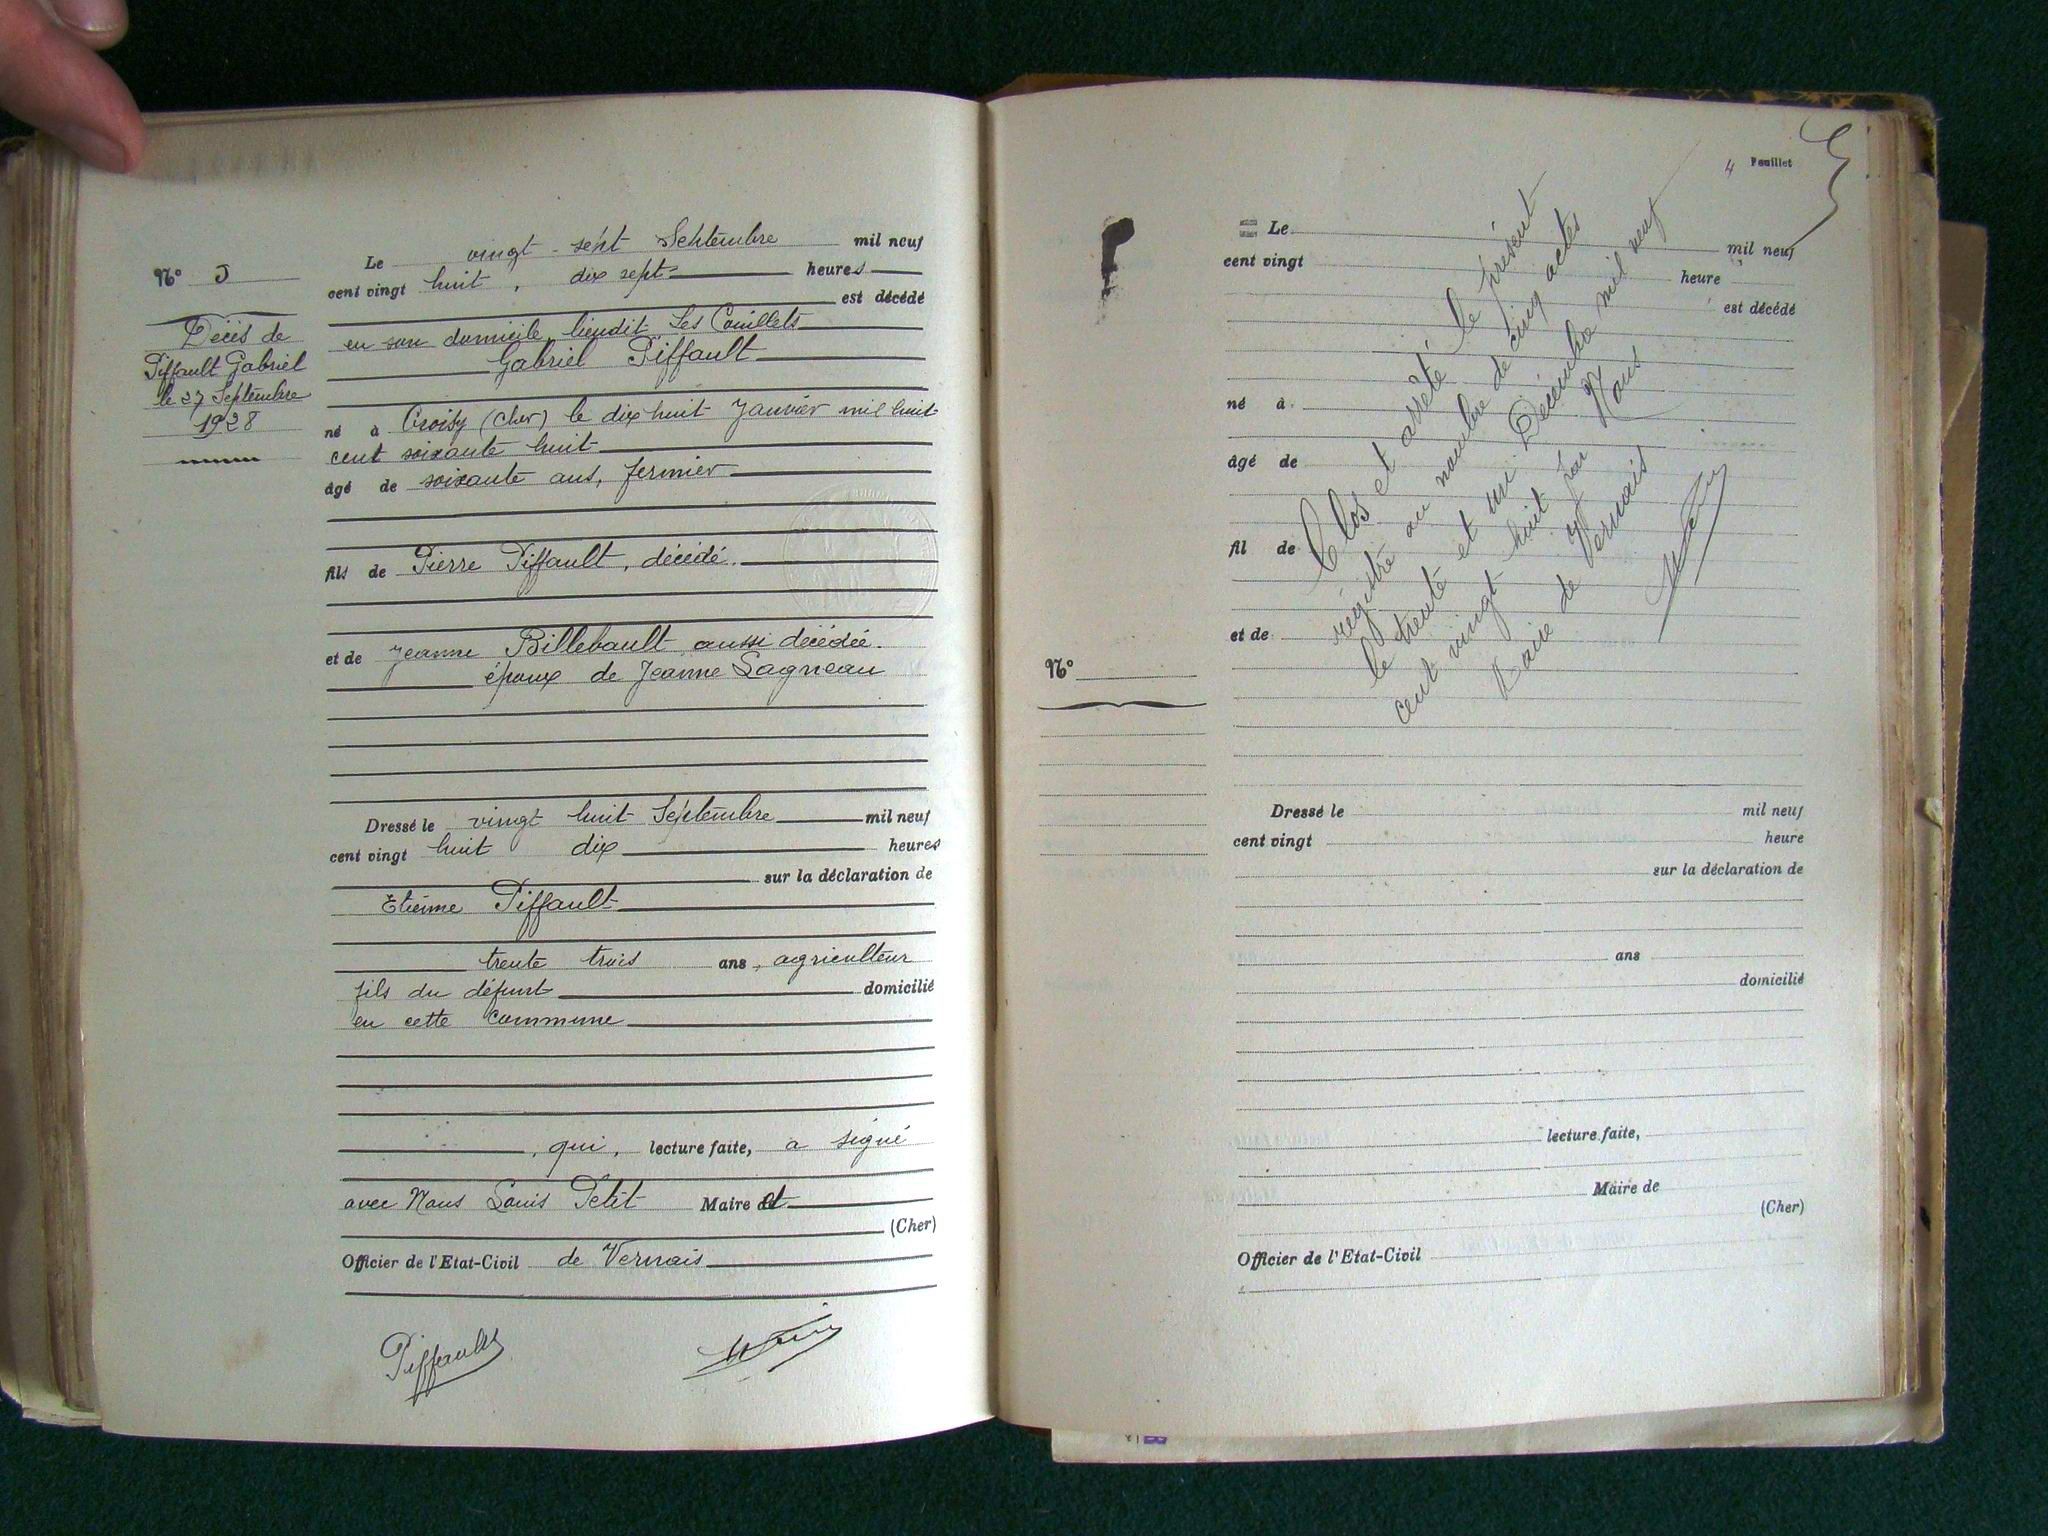 N° 5
Décès de
Piffault Gabriel
le 27 Septembre
1928
Le vingt-sept Septembre mil neuf
cent vingt huit, dix sept heures
est décédé
en son domicile, lieudit Les Couillets
Gabriel Piffault
né à Croisy (Cher) le dix huit Janvier mil huit
cent soixante huit
âgé de soixante ans, fermier
fils de Pierre Piffault, décédé.
et de Jeanne Billebault aussi décédée.
époux de Jeanne Lagneau
Dressé le vingt huit Septembre mil neuf
cent vingt huit dix heures
sur la déclaration de
Etienne Piffault
trente trois ans, agriculteur
fils du défunt domicilié
en cette commune
, qui, lecture faite, a signé
avec Nous Louis Petit Maire et
(Cher)
Officier de l'Etat-Civil de Vernais
Piffault
4 Feuillet
Le mil neuf
cent vingt heure
est décédé
né à
âgé de
fil de
et de
Clos et arrêté le présent
registre au nombre de cinq actes
le trente et un Décembre mil neuf
cent vingt huit par Nous
Maire de Vernais
N°
Dressé le mil neuf
cent vingt heure
sur la déclaration de
ans
domicilié
lecture faite,
Maire de
(Cher)
Officier de l'Etat-Civil